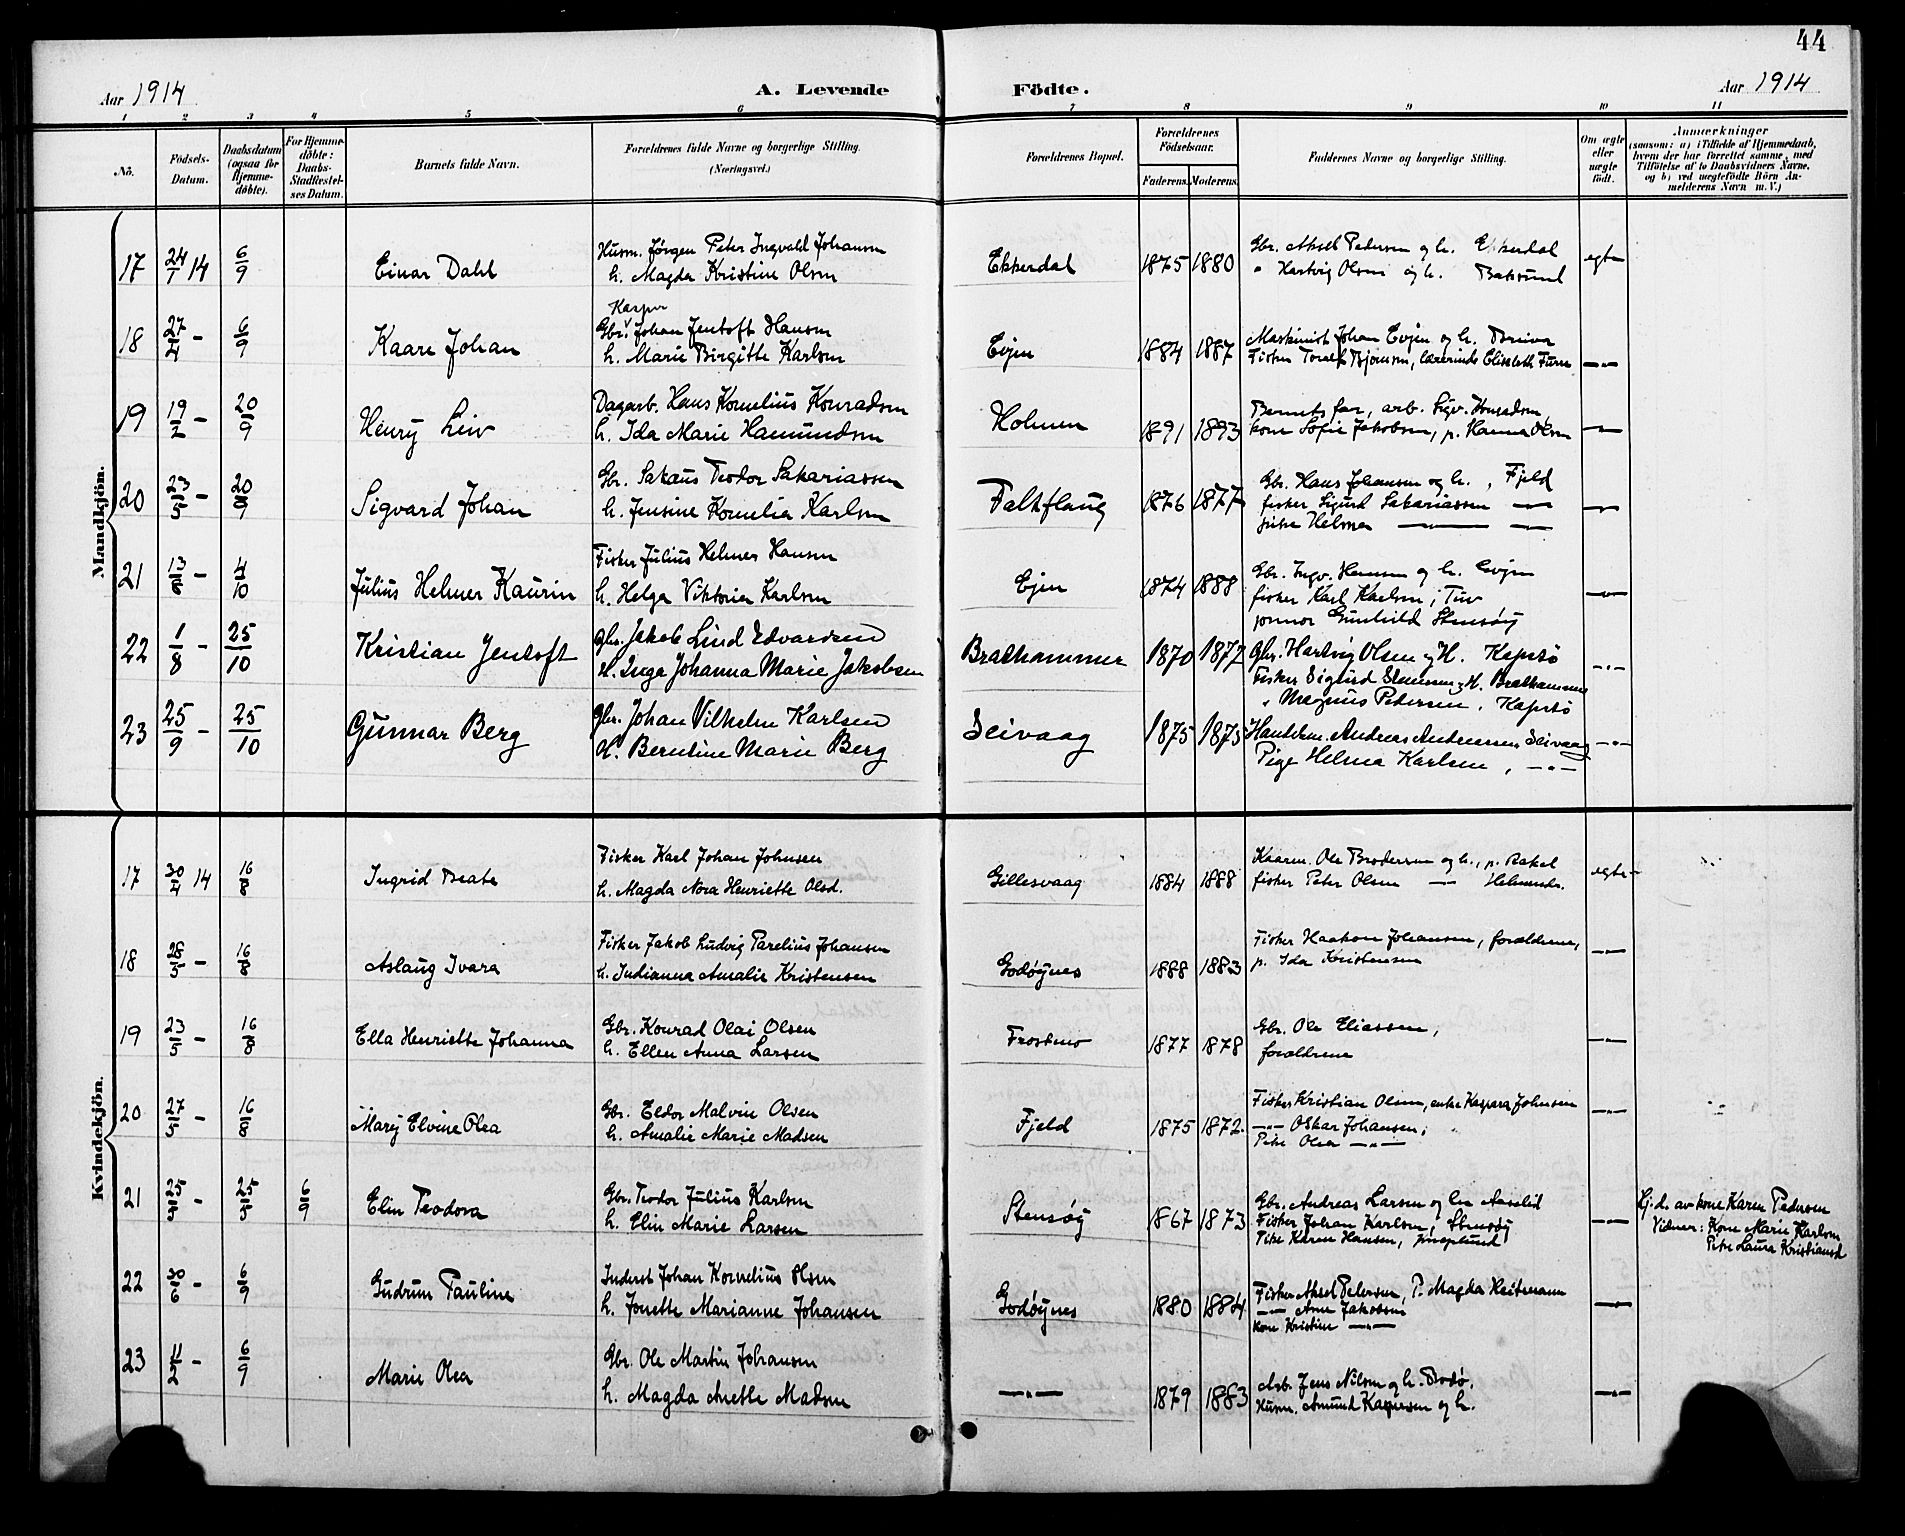 44
Aar 1914
A. Levende
Födte.
Aar 1914
1 2 3 4 5 6 7 8 9 10 11
No.
Födsels-
Datum.
Daabsdatum
(ogsaa for
Hjemme-
döbte).
For Hjemme-
döbte:
Daabs-
Stadfæstel-
ses Datum.
Barnets fulde Navn.
Forældrenes fulde Navne og borgerlige Stilling.
(Næringsvei.)
Forældrenes Bopæl.
Forældrenes
Födselsaar.
Faderens. Moderens.
Faddernes Navne og borgerlige Stilling.
Om ægte
eller
uægte
födt.
Anmærkninger
(saasom: a) i Tilfælde af Hjemmedaab,
hvem der har forrettet samme, med
Tilföielse af Daabsvidners Navne,
og b) ved uægtefödte Börn An-
melderens Navn m.V.)
Mandkjön.
17 24/7 14 6/9 Einar Dahl
Husm. Jørgen Peter Ingvald Johansen
h. Magda Kristine Olsen
Ekkerdal 1875 1880
Gbr. Aksel Pedersen og h. Ekkerdal
" Hartvig Olsen og h.
egte
18 27/4 - 6/9 Kaare Johan
Kaspar
Gbr. Johan Jentoft Hansen
h. Marie Birgitte Karlsen
Evjen 1884 1887
Maskinist Johan Evjen og h.
Fisker Toralf Bjørnsen, lærerinde Elisabeth
-"-
19 19/2 - 20/9 Henry Liv
Dagarb. Hans Kornelius Konradsen
h. Ida Marie Hamundsen
Holmen 1891 1893
Barnets far, arb. Sigv. Konradsen,
kone Sofie Jakobsen, p. Hanna Olsen
-"-
20 23/5 - 20/9 Sigvard Johan
Gbr. Sakaus Teodor Sakariassen
h. Jensine Kornelia Karlsen
Falkflaug 1876 1877
Gbr. Hans Johansen og h., Fjeld
fisker Sigurd Sakariassen -"-
pike Helmer -"- -"-
-"-
21 13/6 - 4/10 Julius Helmer Kaurin
Fisker Julius Helmer Hansen
h. Helga Viktoria Karlsen
Ejen 1874 1888
Gbr. Ingv. Hansen og h. Evjen
fisker Karl Karlsen, Tuv
Gunhild Stensøy
-"-
22 1/8 - 25/10 Kristian Jentoft
Gbr. Jakob Lind Edvardsen
H. Inga Johanna Marie Jakobsen
Brathammer 1870 1872
Gbr. Hartvig Olsen og H. Kapsø
Fisker Sigurd og H. Brathammer
" Magnus Pedersen, Kapsø
-"-
23 25/9 - 25/10 Gunnar Berg
Gbr. Johan Vilhelm Karlsen
H. Berntine Marie Berg
Seivaag 1875 1875
Handelsm. Andreas Andreassen, Seivaag
Pige Helma Karlsen, -"-
-"-
Kvindekjön.
17 30/4 14 16/8 Ingrid Beate
Fisker Karl Johan Johnsen
h. Magda Nora Henriette Olsd.
Gillesvaag 1884 1888
Kaarm. Ole Brodersen og h., p. Rakel
fisker Peter Olsen -"-
egte
18 28/5 - 16/8 Aslaug Ivara
Fisker Jakob Ludvig Parelius Johansen
h. Indianna Amalie Kristensen
Godøynes 1888 1883
Fisker Haakon Johansen, forældrene,
p. Ida Kristensen
-"-
19 23/5 - 16/8 Ella Henriette Johanna
Gbr. Konrad Olai Olsen
h. Ellen Anna Larsen
Frostmo 1877 1878
Gbr. Ole Eliassen,
forældrene
-"-
20 27/5 - 16/8 Mary Elvine Olea
Gbr. Eldor Malvin Olsen
h. Amalie Marie Madsen
Fjeld 1875 1872
Fisker Kristian Olsen, enke Kaspara Johnsen
-"- Oskar Johansen,
Pike Olea -"-
-"-
21 25/5 - 25/5 6/9 Elin Teodora
Gbr. Teodor Julius Karlsen
h. Elin Marie Larsen
Stensøy 1867 1873
Gbr. Andreas Larsen og h. Aaselid
Fisker Johan Karlsen, Stensøy
Pike Karen Hansen,
-"-
Hj.d. av kone Karen Pedersen
Vidner: Kone Marie Karlsen
Pike Laura Kristiansd
22 30/6 - 6/9 Gudrun Pauline
Inderst Johan Kornelius Olsen
h. Jonette Marianne Johansen
Godøynes 1880 1884
Fisker Aksel Pedersen, P. Magda Heitmann
-"- Arne Jakobsen
kone Kristine -"-
-"-
23 11/2 - 6/9 Marie Olea
Gbr. Ole Martin Johansen
h. Magda Anette Madsen
-"- 1879 1883
Arb. Jens Nilsen og h. Bodø.
Husm. Amund Kaspersen og h.
-"-